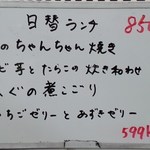 日替ランチ 850
のちゃんちゃん焼き
ビ芋とたらこの炊き和わせ
ぐの煮こごり
ちごゼリーとあずきゼリー
599k